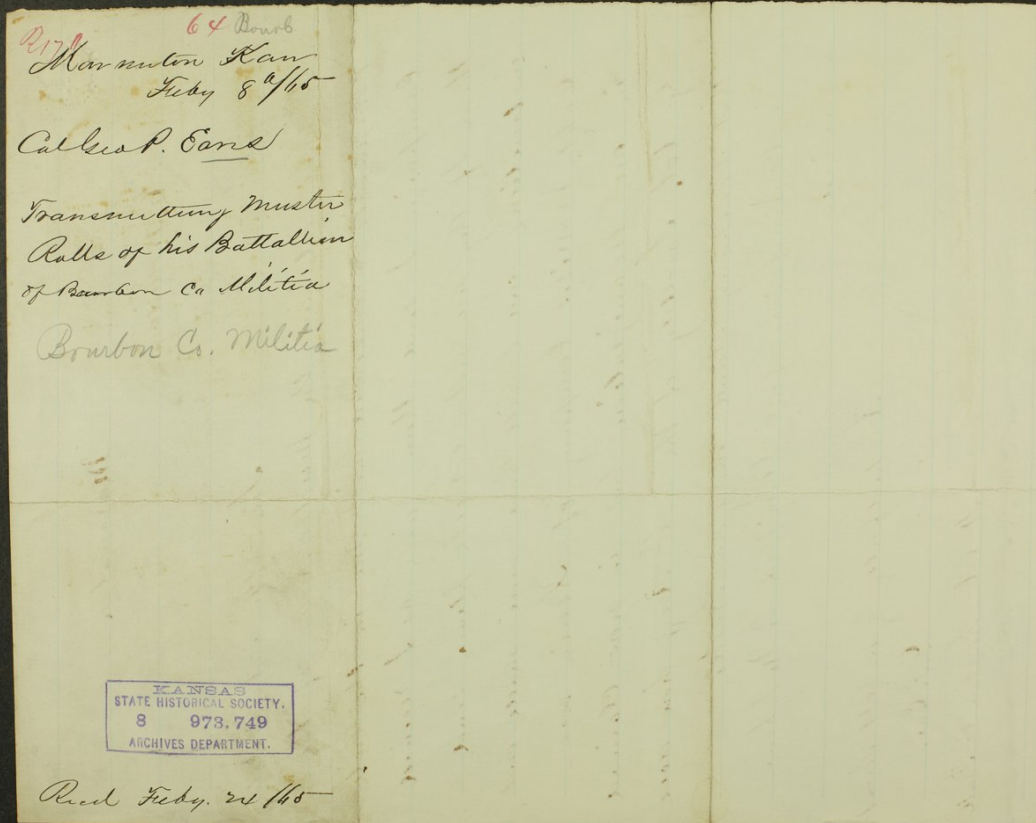 64 Bourb
Marmiton Kan
Feby 8th/65
Col Geo P. Eaves
Transmitting Muster
Rolls of his Battallion
of Bourbon Co Militia
Bourbon Co. Militia
KANSAS
STATE HISTORICAL SOCIETY.
8 973.749
ARCHIVES DEPARTMENT.
Recd Feby. 24/65